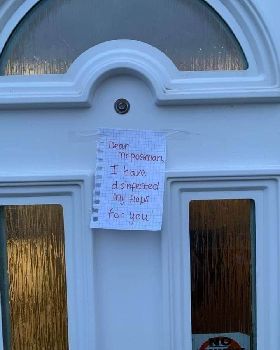 Dear
Mr posman
I have
disinfected
my flaps
for you